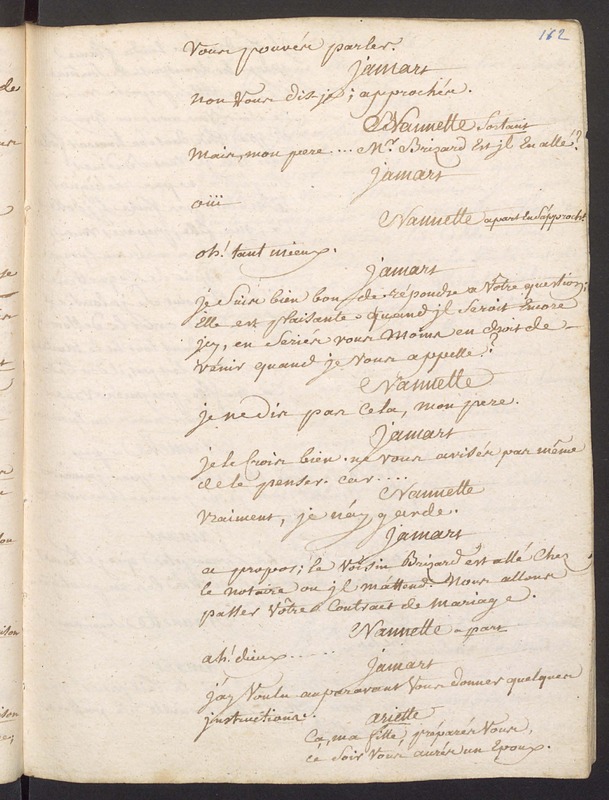 162
Vous pouvés parler.
jamart
non Vous dis je; approchés.
Nannette sortant
Mais, mon pere ... Mr. Brizard Est jl En allé?
jamart
oüi
Nannette apart En s'approcht.
oh! tant mieux.
jamart
je Suis bien bon de répondre a Vôtre question;
Elle est plaisante. quand jl Seroit Encore
jcy, en Seriés vous moins en droit de
Venir quand je vous appelle?
Nannette
je ne dis pas Cela, mon pere.
jamart
je le Crois bien. ne vous avisés pas même
de le penser. car ....
Nannette
Vraiment, je n'ay garde.
jamart
a propos; le Voisin Brizard est allé Chez
le notaire ou jl m'attend. Nous allons
passer Vôtre Contrat de mariage.
Nannette a part
ah! dieux ......
jamart
j'ay Voulu auparavant Vous donner quelques
jnstructions.
ariette
Ca, ma fille, préparés Vous,
cé Soir Vous aurés un Epoux.